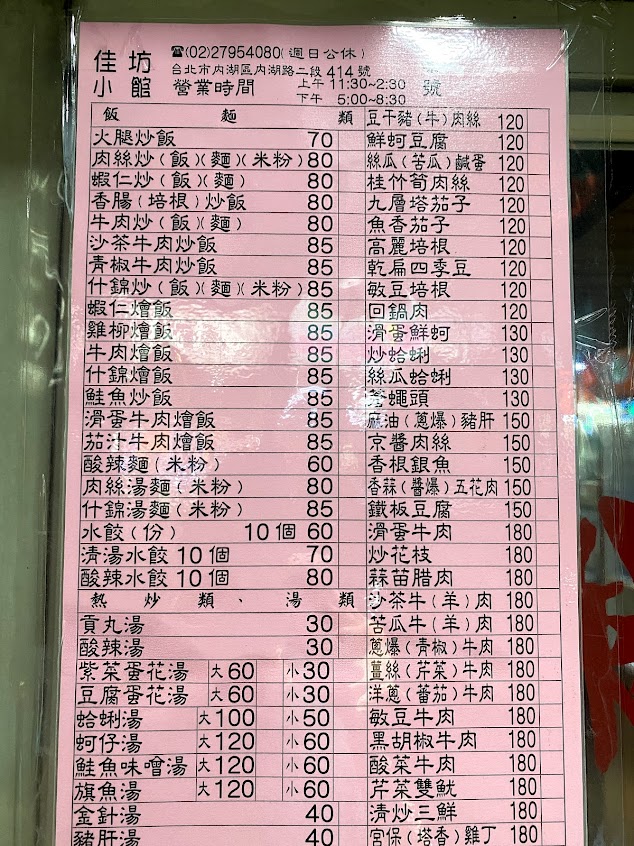 佳坊小館
☎(02)27954080(週日公休)
台北市內湖區內湖路二段414號 號
營業時間 上午 11:30~2:30
下午 5:00~8:30
飯 麵 類
火腿炒飯 70
肉絲炒(飯)(麵)(米粉) 80
蝦仁炒(飯)(麵) 80
香腸(培根)炒飯 80
牛肉炒(飯)(麵) 80
沙茶牛肉炒飯 85
青椒牛肉炒飯 85
什錦炒(飯)(麵)(米粉) 85
蝦仁燴飯 85
雞柳燴飯 85
牛肉燴飯 85
什錦燴飯 85
鮭魚炒飯 85
滑蛋牛肉燴飯 85
茄汁牛肉燴飯 85
酸辣麵(米粉) 60
肉絲湯麵(米粉) 80
什錦湯麵(米粉) 85
水餃(份) 10個 60
清湯水餃10個 70
酸辣水餃10個 80
熱炒類、湯類
貢丸湯 30
酸辣湯 30
紫菜蛋花湯 大60 小30
豆腐蛋花湯 大60 小30
蛤蜊湯 大100 小50
蚵仔湯 大120 小60
鮭魚味噌湯 大120 小60
旗魚湯 大120 小60
金針湯 40
豬肝湯 40
豆干豬(牛)肉絲 120
鮮蚵豆腐 120
絲瓜(苦瓜)鹹蛋 120
桂竹筍肉絲 120
九層塔茄子 120
魚香茄子 120
高麗培根 120
乾扁四季豆 120
敏豆培根 120
回鍋肉 120
滑蛋鮮蚵 130
炒蛤蜊 130
絲瓜蛤蜊 130
蒼蠅頭 130
麻油(蔥爆)豬肝 150
京醬肉絲 150
香根銀魚 150
香蒜(醬爆)五花肉 150
鐵板豆腐 150
滑蛋牛肉 180
炒花枝 180
蒜苗腊肉 180
沙茶牛(羊)肉 180
苦瓜牛(羊)肉 180
蔥爆(青椒)牛肉 180
薑絲(芹菜)牛肉 180
洋蔥(蕃茄)牛肉 180
敏豆牛肉 180
黑胡椒牛肉 180
酸菜牛肉 180
芹菜雙魷 180
清炒三鮮 180
宮保(塔香)雞丁 180